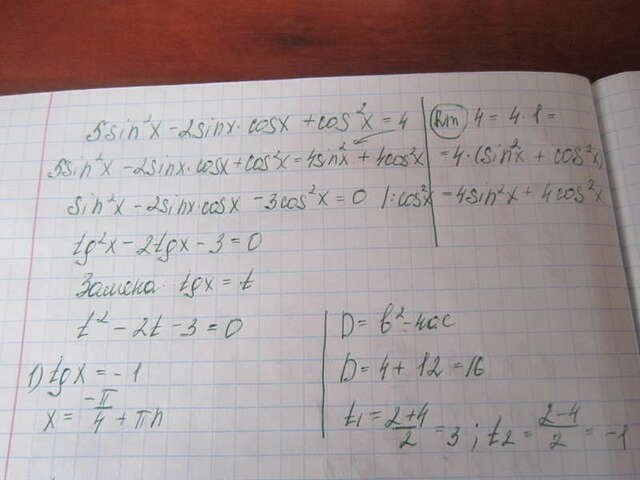 5sin²x - 2sinx·cosx + cos²x = 4
5sin²x - 2sinx·cosx + cos²x = 4sin²x + 4cos²x
sin²x - 2sinx·cosx - 3cos²x = 0 |:cos²x
tg²x - 2tgx - 3 = 0
Замена tgx = t
t² - 2t - 3 = 0
1) tgx = -1
x = -π/4 + πn
4 = 4·1 =
= 4·(sin²x + cos²x)
- 4sin²x + 4cos²x
D = b² - 4ac
D = 4 + 12 = 16
t1 = 2+4/2 = 3 ; t2 = 2-4/2 = -1